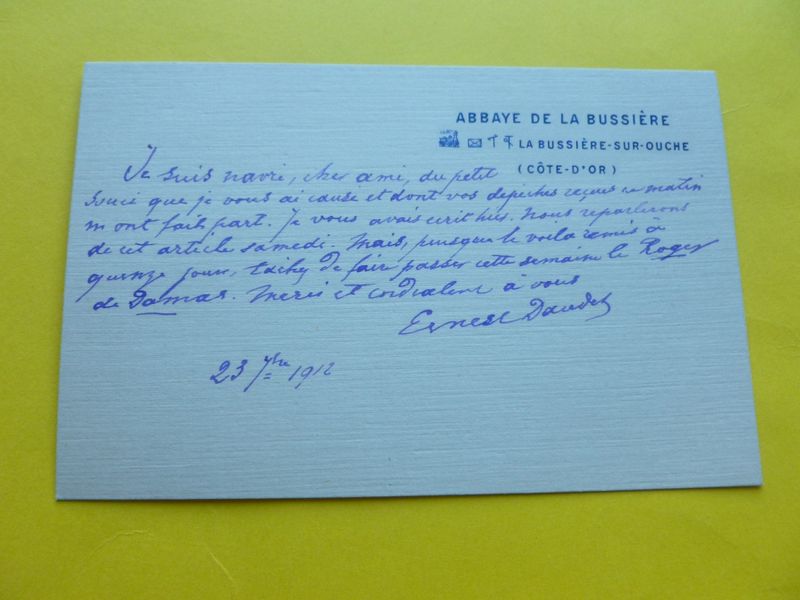 ABBAYE DE LA BUSSIÈRE
LA BUSSIÈRE-SUR-OUCHE
(CÔTE-D'OR)
Je suis navré, cher ami, du petit
souci que je vous ai causé et dont vos dépêches reçues ce matin
m'ont fait part. Je vous avais écrit hier. Nous reparlerons
de cet article samedi. Mais, puisque le voilà remis à
quinze jours, tachez de faire passer cette semaine le Roger
de Damas. Merci et cordialement à vous
Ernest Daudet
23 7bre 1912